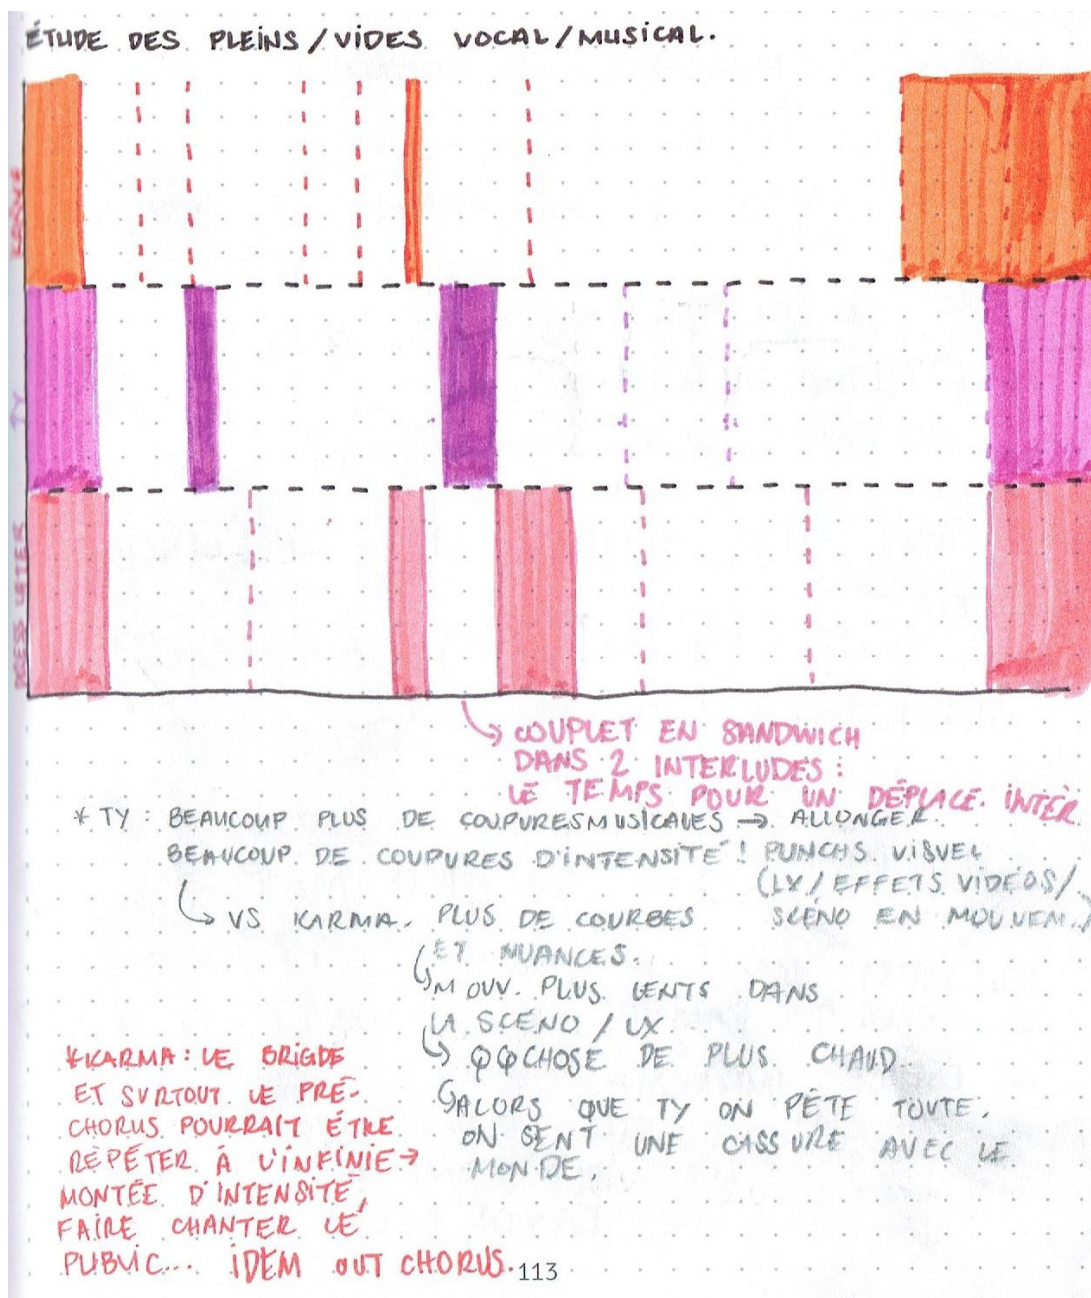 ÉTUDE DES PLEINS/VIDES VOCAL/MUSICAL.
KARMA
TY
DRESS LATER
↳ COUPLET EN SANDWICH
DANS 2 INTERLUDES :
LE TEMPS POUR UN DÉPLACE. INTER.
* TY : BEAUCOUP PLUS DE COUPURES MUSICALES → ALLONGER.
BEAUCOUP DE COUPURES D'INTENSITÉ ! PUNCHS VISUEL
(LX/EFFETS VIDÉOS/
SCÉNO EN MOUVEM.)
↳ VS KARMA. PLUS DE COURBES
ET NUANCES.
↳ MOUV. PLUS LENTS DANS
LA SCÉNO / LX
↳ QQCHOSE DE PLUS CHAUD.
↳ ALORS QUE TY ON PÈTE TOUTE.
ON SENT UNE CASSURE AVEC LE
MONDE.
*KARMA : LE BRIGDE
ET SURTOUT LE PRÉ-
CHORUS POURRAIT ÊTRE
RÉPÉTER À L'INFINIE →
MONTÉE D'INTENSITÉ,
FAIRE CHANTER LE
PUBLIC... IDEM OUT CHORUS.
113